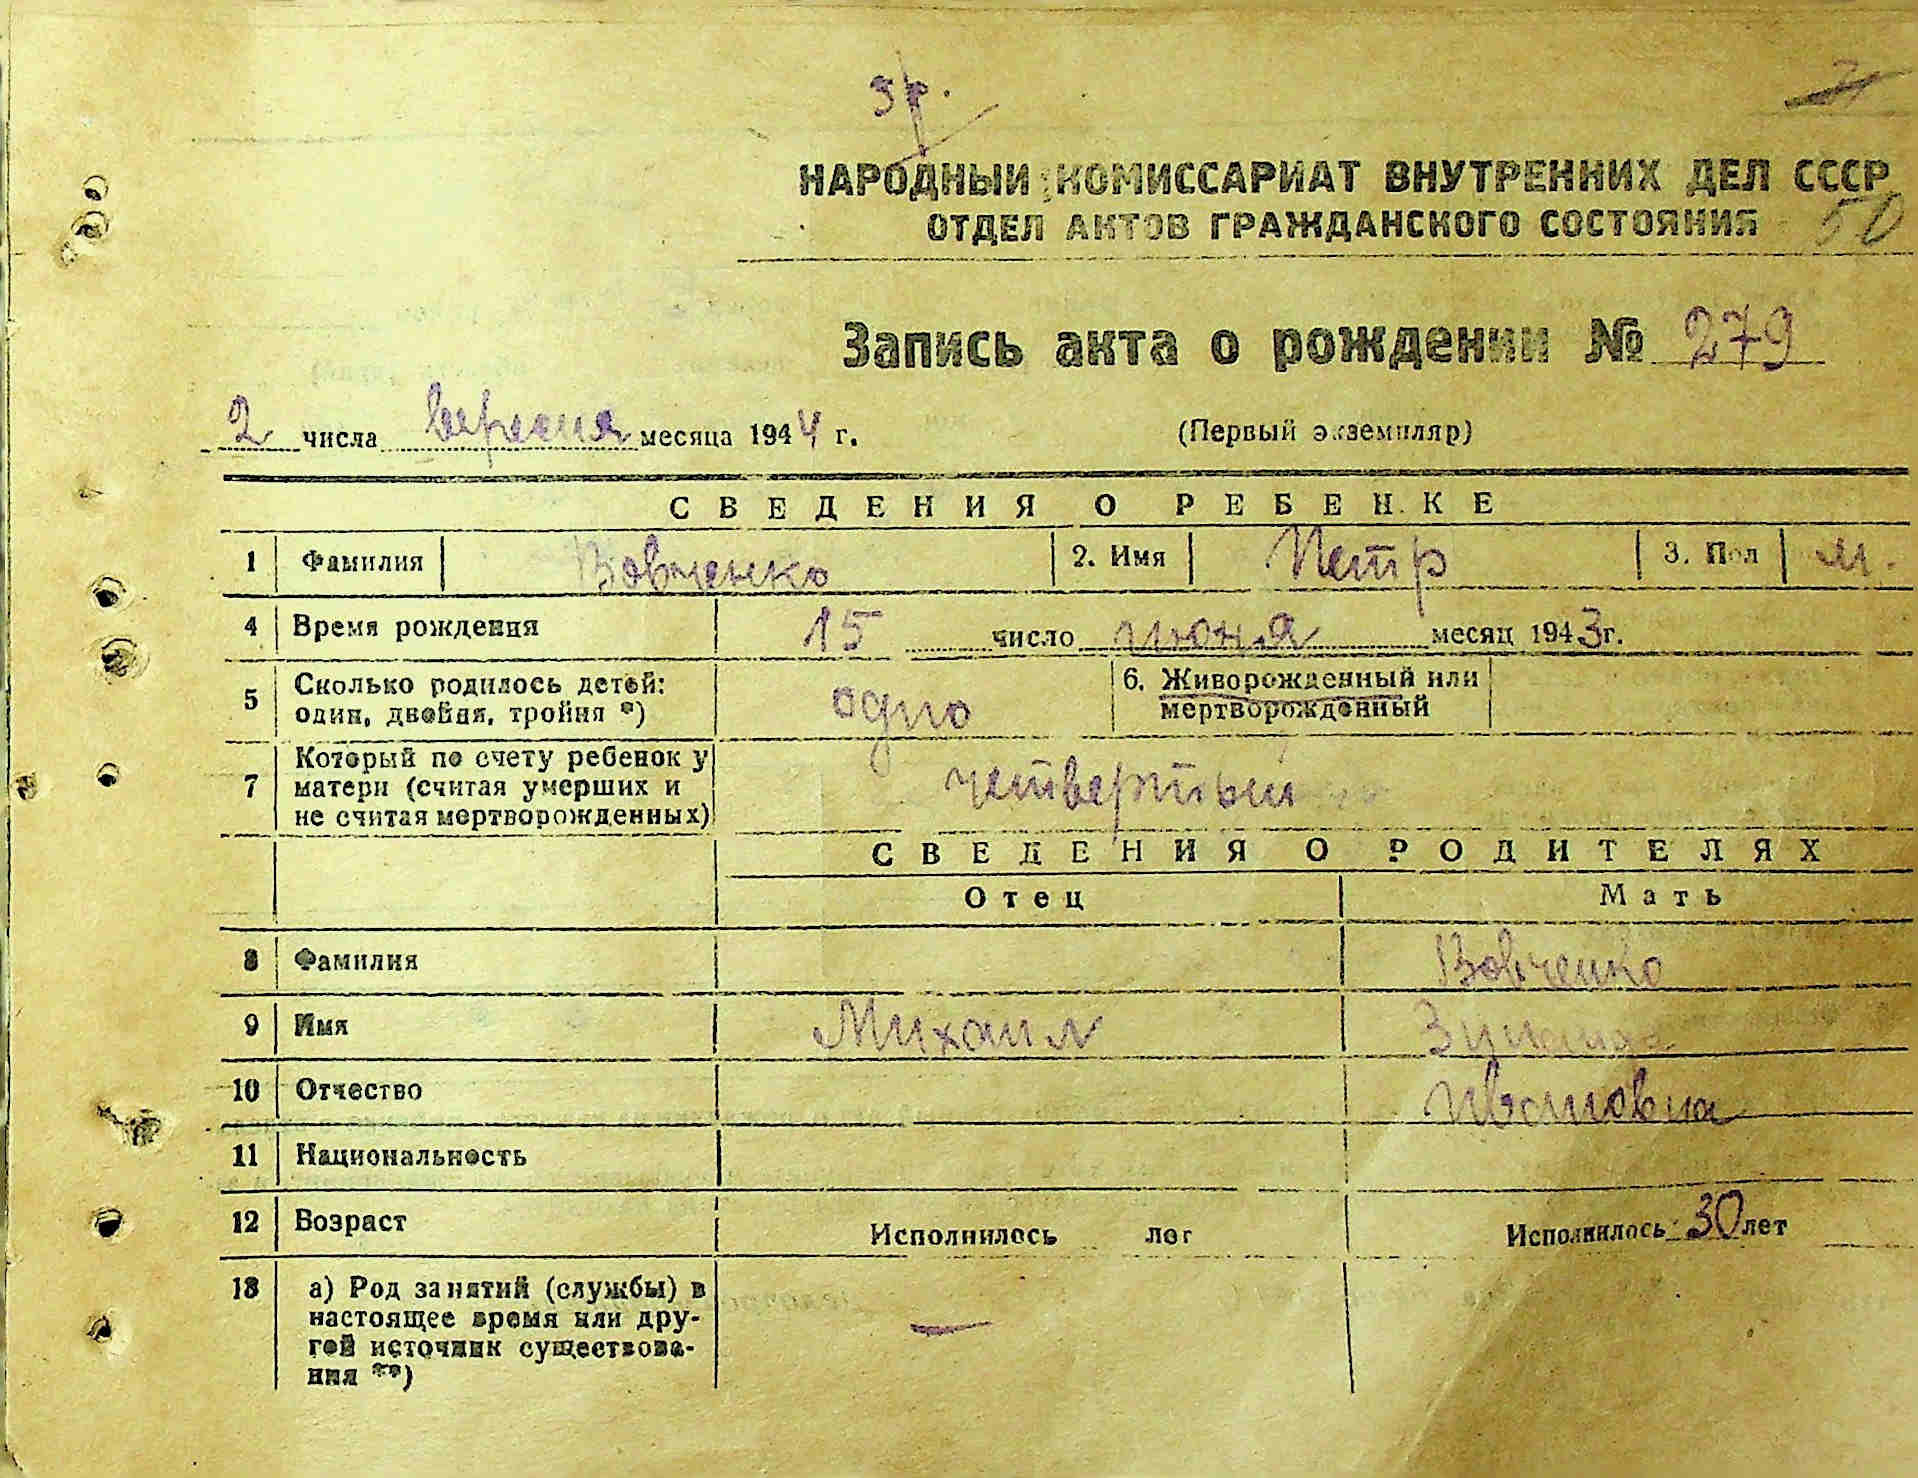 зр.
НАРОДНЫЙ КОМИССАРИАТ ВНУТРЕННИХ ДЕЛ СССР
ОТДЕЛ АКТОВ ГРАЖДАНСКОГО СОСТОЯНИЯ 50
Запись акта о рождении № 279
2 числа вересня месяца 1944 г. (Первый экземпляр)
СВЕДЕНИЯ О РЕБЕНКЕ
1 Фамилия Вовченко 2. Имя Петр 3. Пол м.
4 Время рождения 15 число июня месяц 1943 г.
5 Сколько родилось детей: один, двойня, тройня *) одно 6. Живорожденный или мертворожденный
7 Который по счету ребенок у матери (считая умерших и не считая мертворожденных) четвертый
СВЕДЕНИЯ О РОДИТЕЛЯХ
Отец Мать
8 Фамилия Вовченко
9 Имя Михаил
10 Отчество Ивановна
11 Национальность
12 Возраст Исполнилось лет Исполнилось 30 лет
13 а) Род занятий (службы) в
настоящее время или дру-
гой источник существова-
ния **) —